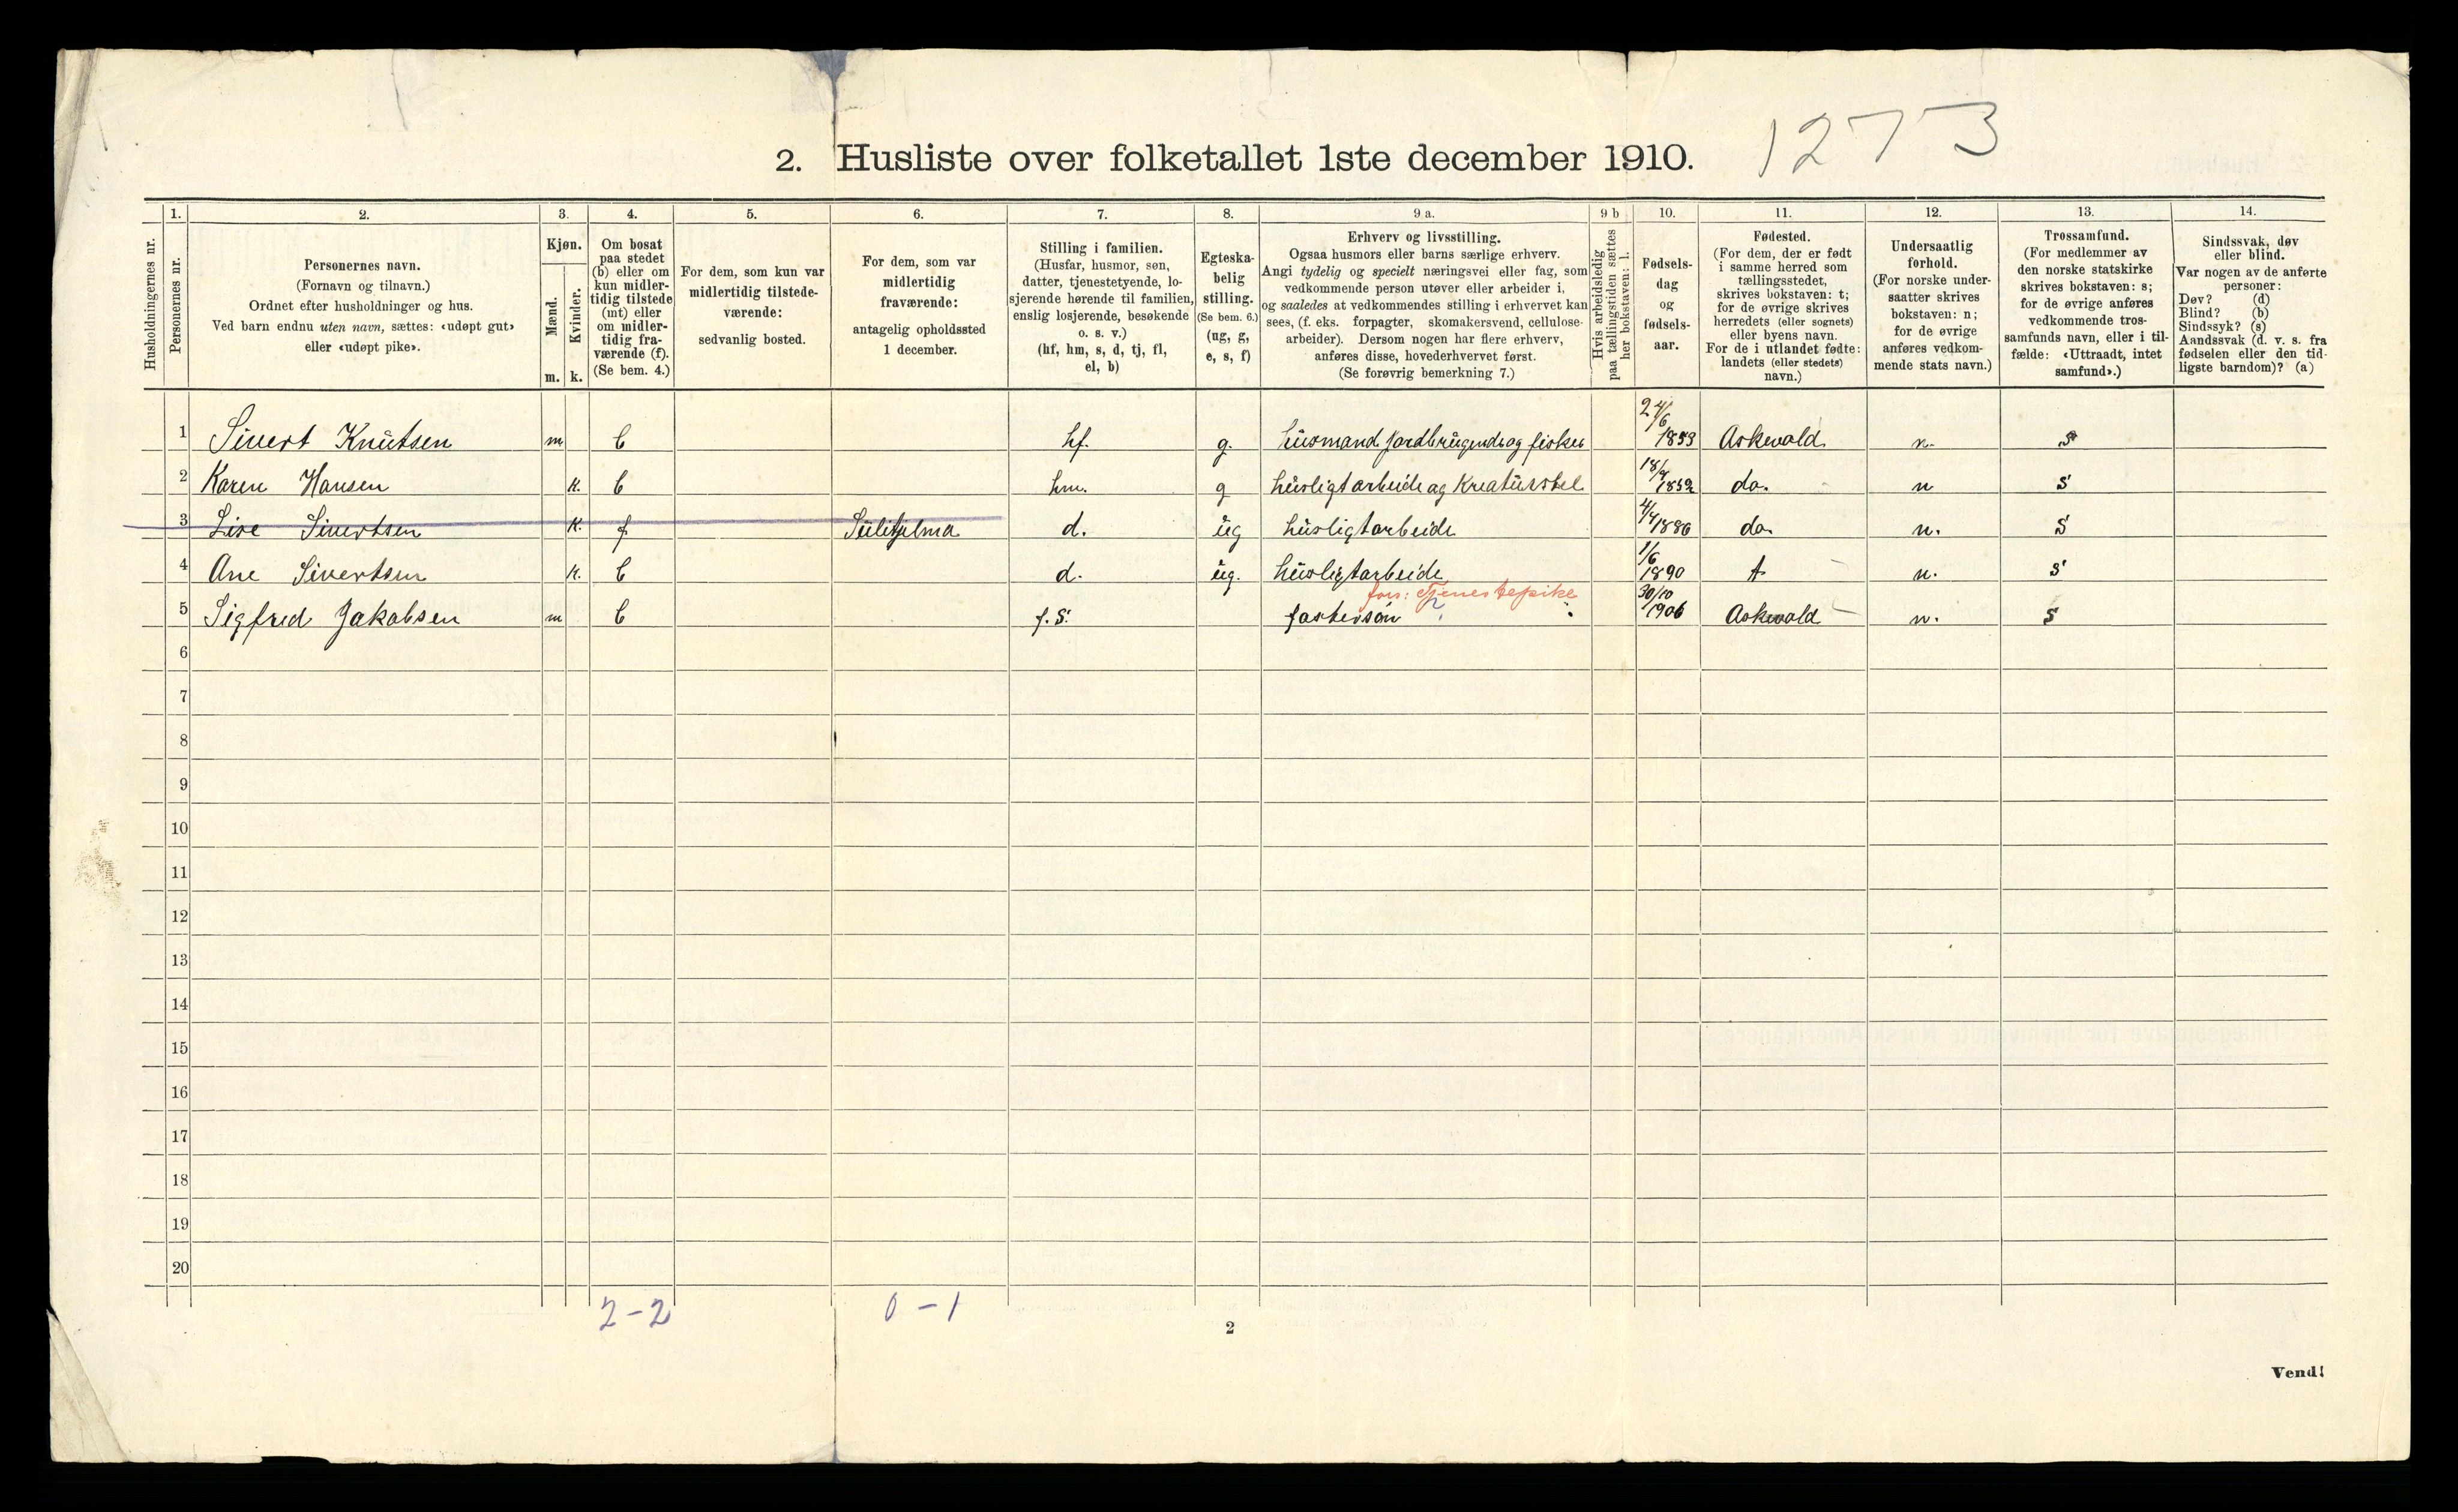 1273
2. Husliste over folketallet 1ste december 1910.
1. 2. 3. 4. 5. 6. 7. 8. 9 a. 9 b 10. 11. 12. 13. 14.
Husholdningernes nr.
Personernes nr.
Personernes navn.
(Fornavn og tilnavn.)
Ordnet efter husholdninger og hus.
Ved barn endnu uten navn, sættes: «udøpt gut»
eller «udøpt pike».
Kjøn.
Mænd.
Kvinder.
m. k.
Om bosat
paa stedet
(b) eller om
kun midler-
tidig tilstede
(mt) eller
om midler-
tidig fra-
værende (f).
(Se bem. 4.)
For dem, som kun var
midlertidig tilstede-
værende:
sedvanlig bosted.
For dem, som var
midlertidig
fraværende:
antagelig opholdssted
1 december.
Stilling i familien.
(Husfar, husmor, søn,
datter, tjenestetyende, lo-
sjerende hørende til familien,
enslig losjerende, besøkende
o. s. v.)
(hf, hm, s, d, tj, fl,
el, b)
Egteska-
belig
stilling.
(Se bem. 6.)
(ug, g,
e, s, f)
Erhverv og livsstilling.
Ogsaa husmors eller barns særlige erhverv.
Angi tydelig og specielt næringsvei eller fag, som
vedkommende person utøver eller arbeider i,
og saaledes at vedkommendes stilling i erhvervet kan
sees, (f. eks. forpagter, skomakersvend, cellulose-
arbeider). Dersom nogen har flere erhverv,
anføres disse, hovederhvervet først.
(Se forøvrig bemerkning 7.)
Hvis arbeidsledig
paa tællingstiden sættes
her bokstaven: l.
Fødsels-
dag
og
fødsels-
aar.
Fødested.
(For dem, der er født
i samme herred som
tællingsstedet,
skrives bokstaven: t;
for de øvrige skrives
herredets (eller sognets)
eller byens navn.
For de i utlandet fødte:
landets (eller stedets)
navn.)
Undersaatlig
forhold.
(For norske under-
saatter skrives
bokstaven: n;
for de øvrige
anføres vedkom-
mende stats navn.)
Trossamfund.
(For medlemmer av
den norske statskirke
skrives bokstaven: s;
for de øvrige anføres
vedkommende tros-
samfunds navn, eller i til-
fælde: «Uttraadt, intet
samfund».)
Sindssvak, døv
eller blind.
Var nogen av de anførte
personer:
Døv? (d)
Blind? (b)
Sindssyk? (s)
Aandssvak (d. v. s. fra
fødselen eller den tid-
ligste barndom)? (a)
1 Sivert Knutsen m b hf. g. husmand jordbrugende og fisker 24/6 1853 Askevold n. s
2 Karen Hansen k. b hm. g husligt arbeide og Kreaturstel 18/9 1852 do. n s
3 Lise Sivertsen k. f Sulitjelma d. ug husligt arbeide 4/4 1886 do. n. s
4 Ane Sivertsen k. b d. ug. husligt arbeide 1/6 1890 t n. s
fors: Tjenestepike
5 Sigfred Jakobsen m b f. s. fostersøn 30/10 1906 Askevold n. s
6
7
8
9
10
11
12
13
14
15
16
17
18
19
20
2-2 0-1
2
Vend!